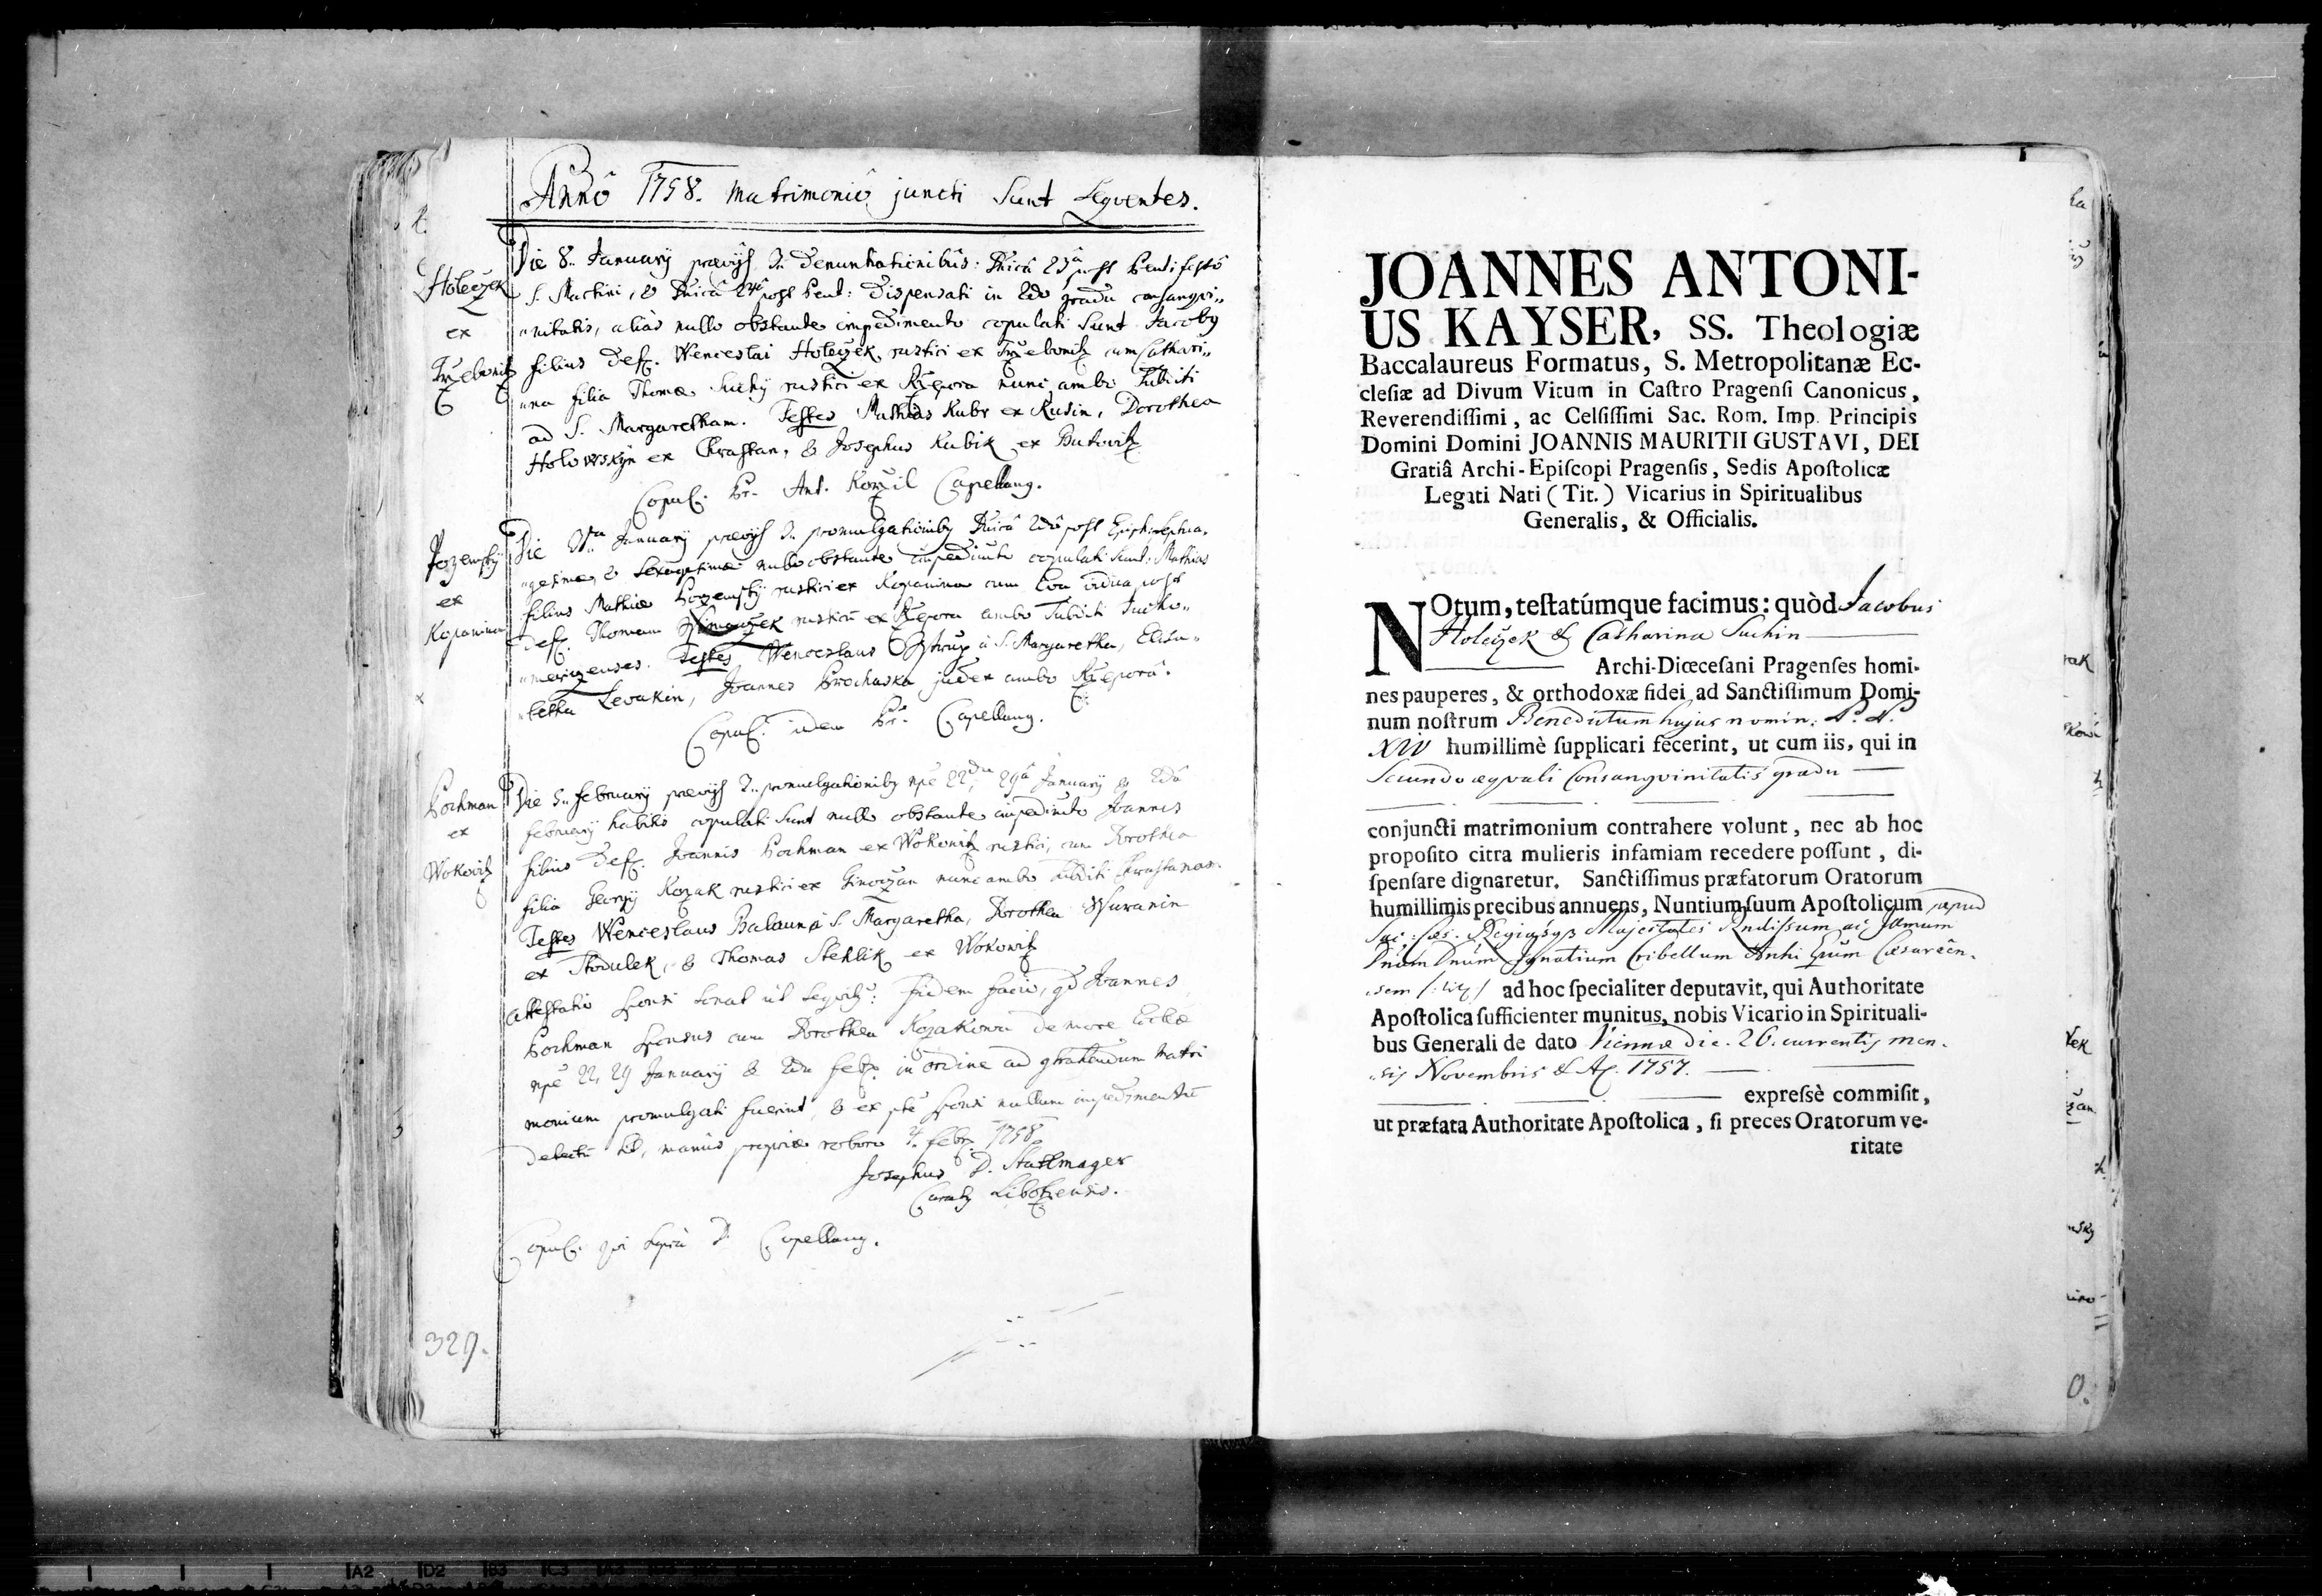 Annô 1758. Matrimoniô juncti Sunt Seqventes.
Holeczek
ex
Trzebonitz
Die 8. January prævijs 3. Denuntiationibus: Dnicâ 23â post Pent: festô
S. Martini, & Dnicâ post Pent: Dispensati in 2do gradu consangvi„
„nitatis, aliàs nullo obstante impedimento copulati Sunt Jacoby
filius Def. Wenceslai Holeczek rustici ex Trzebonitz cum Cathari„
„na filia Thomæ Suchy rustici ex Rzepora nunc ambo Subditi
ad S. Margaretham. Testes Mathias Kubr ex Rusin, Dorothea
Holowskin ex Chrasstan, & Josephus Kubik ex Butowitz
Copul. Pr. Ant. Capellang.
ex
Kopanina
Die January prævijs 3. promulgationiby Dnicâ 2dâ post Epiph: Septua„
„gesimæ, & Sexagesimæ nullo obstante impedimto copulati Sunt: Mathias
filius Mathiæ rustici ex Kopanina cum Eva vidua post
def. Thomam rusticũ ex Rzepora ambo Subditi Tucho„
„merzicenses. Testes Wenceslaus à S. Margaretha, Elisa„
„betha Levakin, Joannes Prochaska judex ambo Rzeporâ.
Copul. idem Pr. Capellang.
Pochman
ex
Wokowitz
Die 5. february prævijs 3. promulgationiby npè 22da, 29â January & 2dâ
february habitis copulati Sunt nullo obstante impedimto Joannes
filius Def. Joannis Pochman ex Wokowitz rustici, cum Dorothea
filia Georgij Kozak rustici ex Ginoczan nunc ambo Subditi
Testes Wenceslaus Balaun à S. Margaretha, Dorothea Wuranin
ex Stodulek, & Thomas Stehlik ex Wokowitz
Attestatio sponsi sonat ut seqvitr: fidem facio, qd Joannes
Pochman sponsus cum Dorothea Kozakowa de more Eccliæ
npè 22, 29 January & 2da feb. in ordine ad ghahendum Matri
monium promulgati fuerint, & ex pte sponsi nullum impedimentũ
detectũ sit, manûs propriæ roboro 4. febr. 1758
Josephus D. Stallmayer
Curaty Libotzensis.
Copul. qui suprà D. Capellang.
329.
JOANNES ANTONI-
US KAYSER, SS. Theologiæ
Baccalaureus Formatus, S. Metropolitanæ Ec-
clesiæ ad Divum Vitum in Castro Pragensi Canonicus,
Reverendissimi, ac Celsissimi Sac. Rom. Imp. Principis
Domini Domini JOANNIS MAURITII GUSTAVI, DEI
Gratiâ Archi-Episcopi Pragensis, Sedis Apostolicæ
Legati Nati (Tit.) Vicarius in Spiritualibus
Generalis, & Officialis.
NOtum, testatúmque facimus: quòd Jacobus
Holeczek & Catharina Suchin
Archi-Diœcesani Pragenses homi-
nes pauperes, & orthodoxæ fidei ad Sanctissimum Domi-
num nostrum Benedictum hujus nomin: P. P.
XIV humillimè supplicari fecerint, ut cum iis, qui in
Secundo æqvali Consangvinitatis gradu
conjuncti matrimonium contrahere volunt, nec ab hoc
proposito citra mulieris infamiam recedere possunt, di-
spensare dignaretur. Sanctissimus præfatorum Oratorum
humillimis precibus annuens, Nuntium suum Apostolicum apud
Sac: Cæs: Regiasqȝ Majestates Rndissum ac Illmum
Dnum Dnum Ignatium Cribellum Archi Epum Cæsareên„
„sem /:tit:/ ad hoc specialiter deputavit, qui Authoritate
Apostolica sufficienter munitus, nobis Vicario in Spirituali-
bus Generali de dato Viennæ die. 26. currentis men„
„sis Novembris & Aĩ. 1757.
expressè commisit,
ut præfata Authoritate Apostolica, si preces Oratorum ve-
ritate